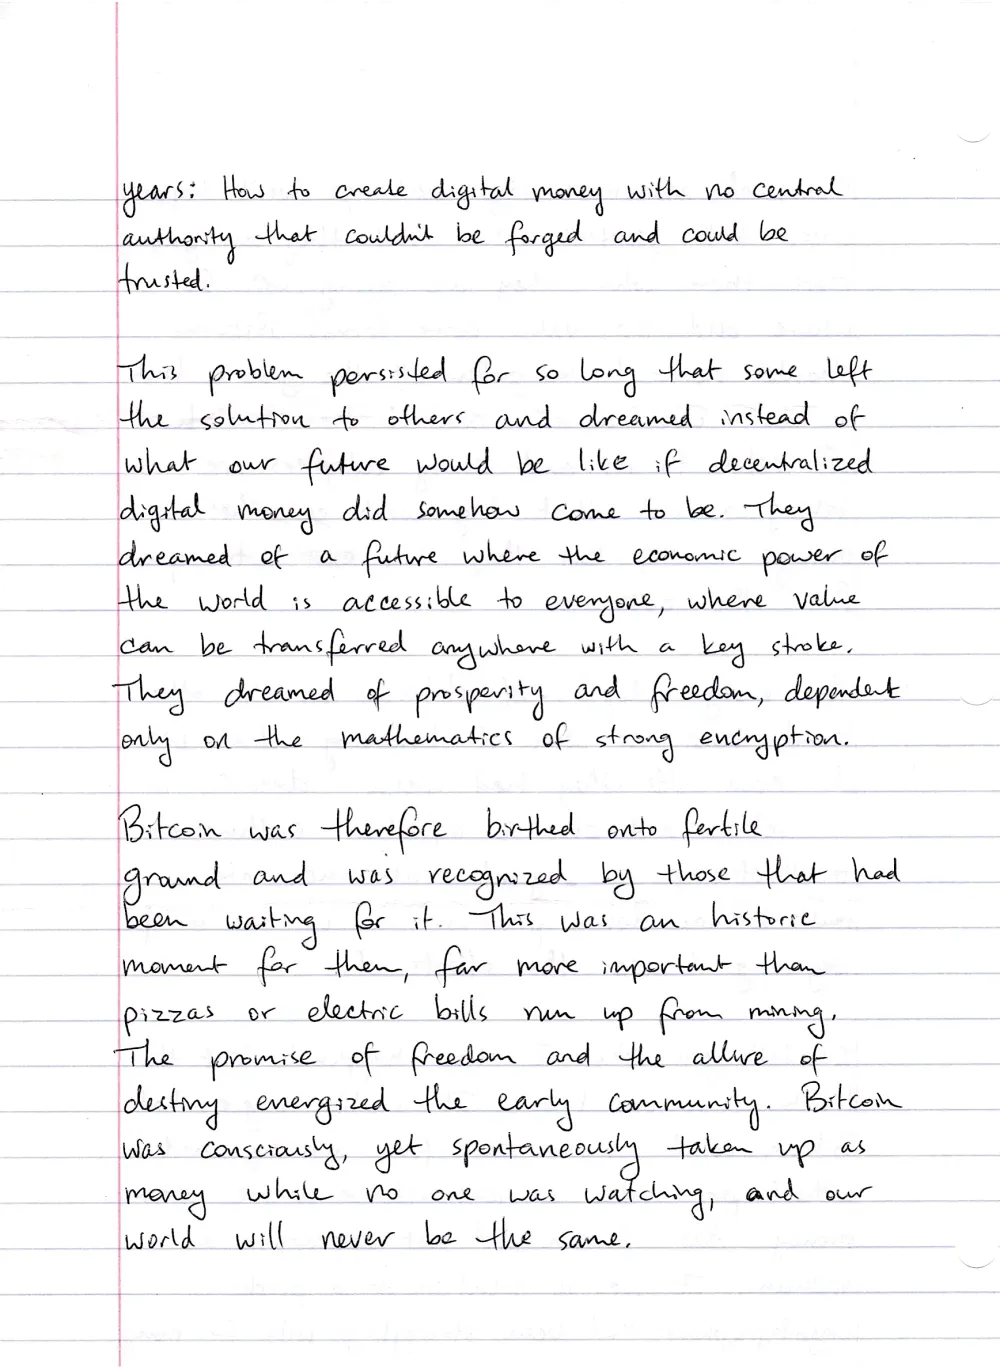 years: How to create digital money with no central
authority that couldn't be forged and could be
trusted.
This problem persisted for so long that some left
the solution to others and dreamed instead of
what our future would be like if decentralized
digital money did somehow come to be. They
dreamed of a future where the economic power of
the world is accessible to everyone, where value
can be transferred anywhere with a key stroke.
They dreamed of prosperity and freedom, dependent
only on the mathematics of strong encryption.
Bitcoin was therefore birthed onto fertile
ground and was recognized by those that had
been waiting for it. This was an historic
moment for them, far more important than
pizzas or electric bills run up from mining.
The promise of freedom and the allure of
destiny energized the early community. Bitcoin
was consciously, yet spontaneously taken up as
money while no one was watching, and our
world will never be the same.